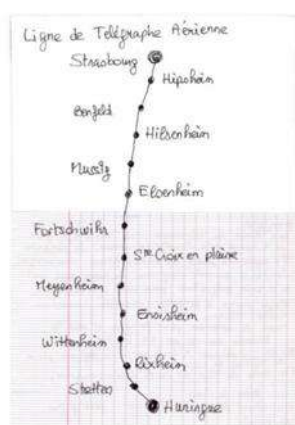 Ligne de Télégraphe Aérienne
Strasbourg
Hipsheim
Benfeld
Hilsenheim
Mussig
Elsenheim
Fortschwihr
Ste Croix en plaine
Meyenheim
Ensisheim
Wittenheim
Rixheim
Stetten
Huningue